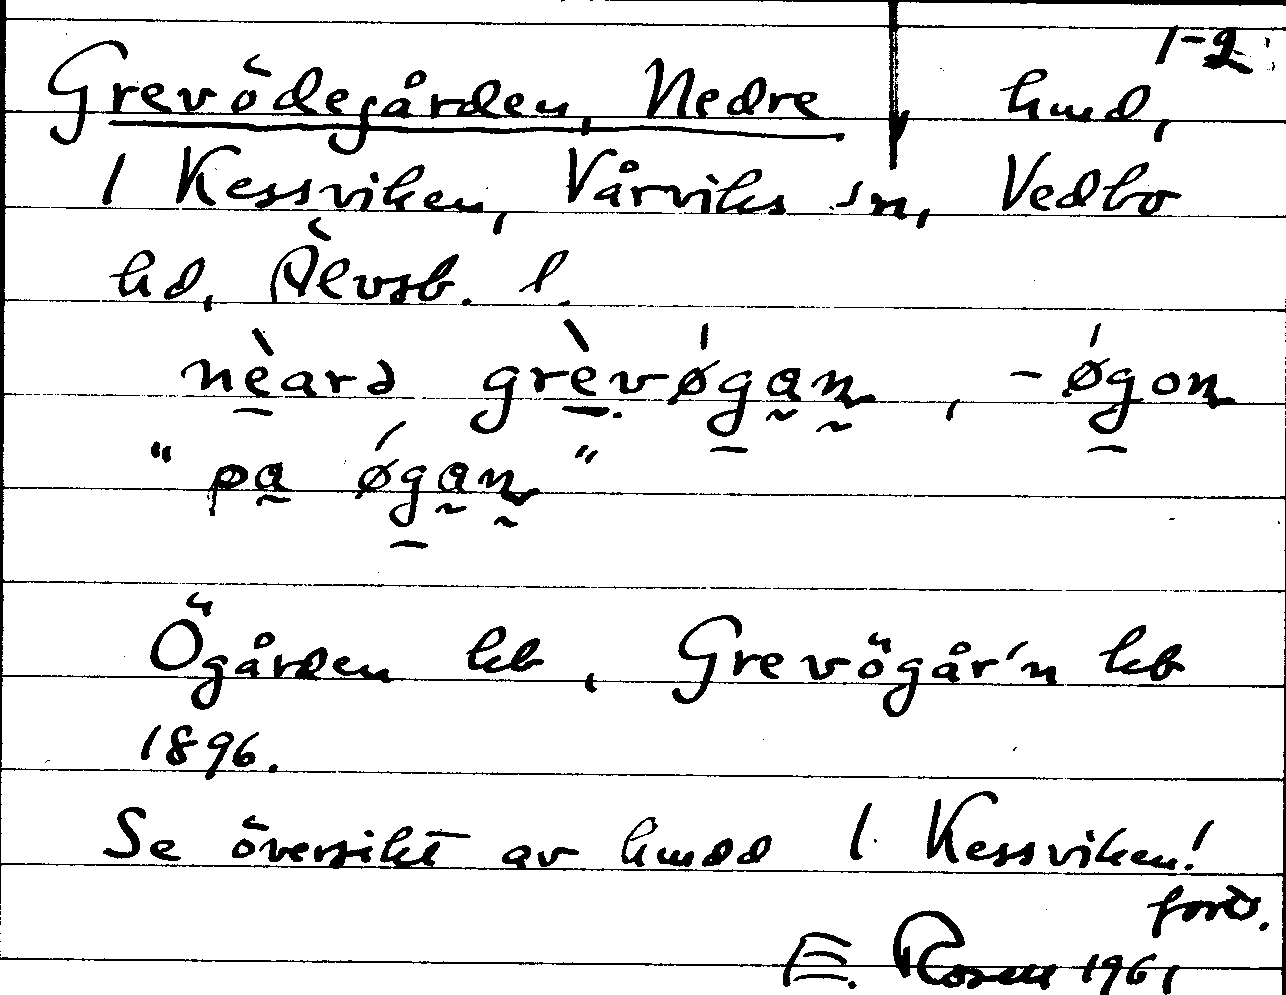 1-2
Grevödegården, Nedre, hmd,
1 Kessviken, Vårviks sn, Vedbo
hd, Älvsb. l.
nèarə grèvǿgan, -ǿgon
"pa ǿgan"
Ögården kb, Grevögår'n kb
1896.
Se översikt av hmdd 1 Kessviken!
forts.
E. Rosell 1961